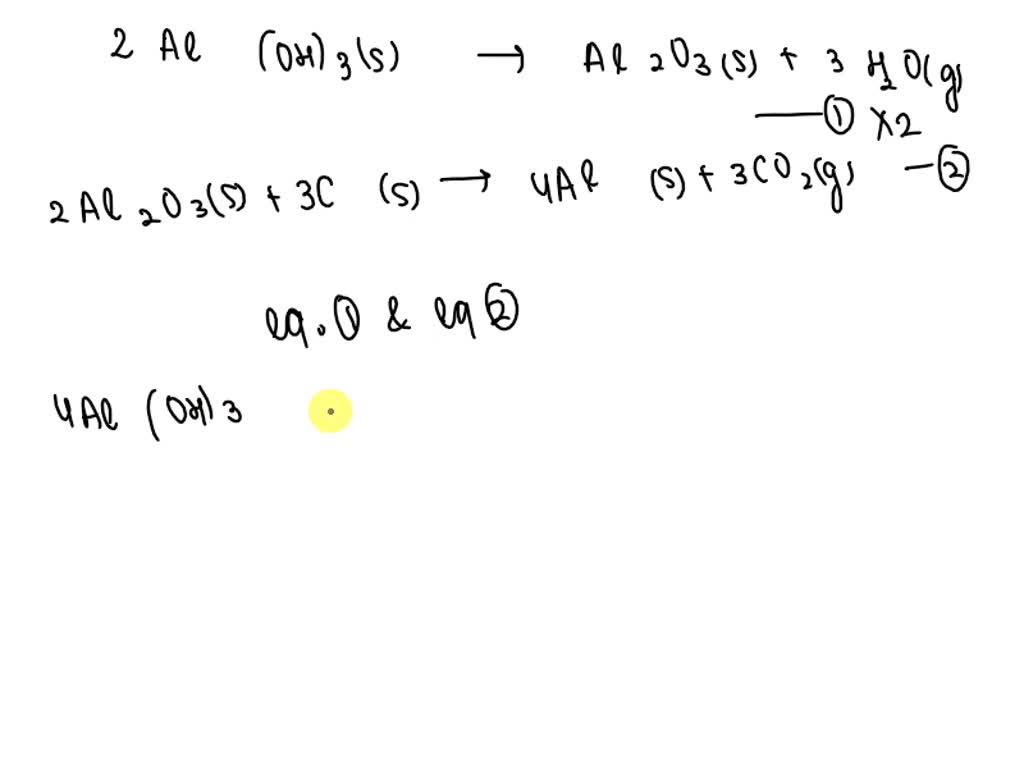 2 Al (OH)3(s) → Al2O3(s) + 3 H2O(g)
—① ×2
2Al2O3(s) + 3C (s) → 4Al (s) + 3CO2(g) —②
eq.① & eq②
4Al (OH)3